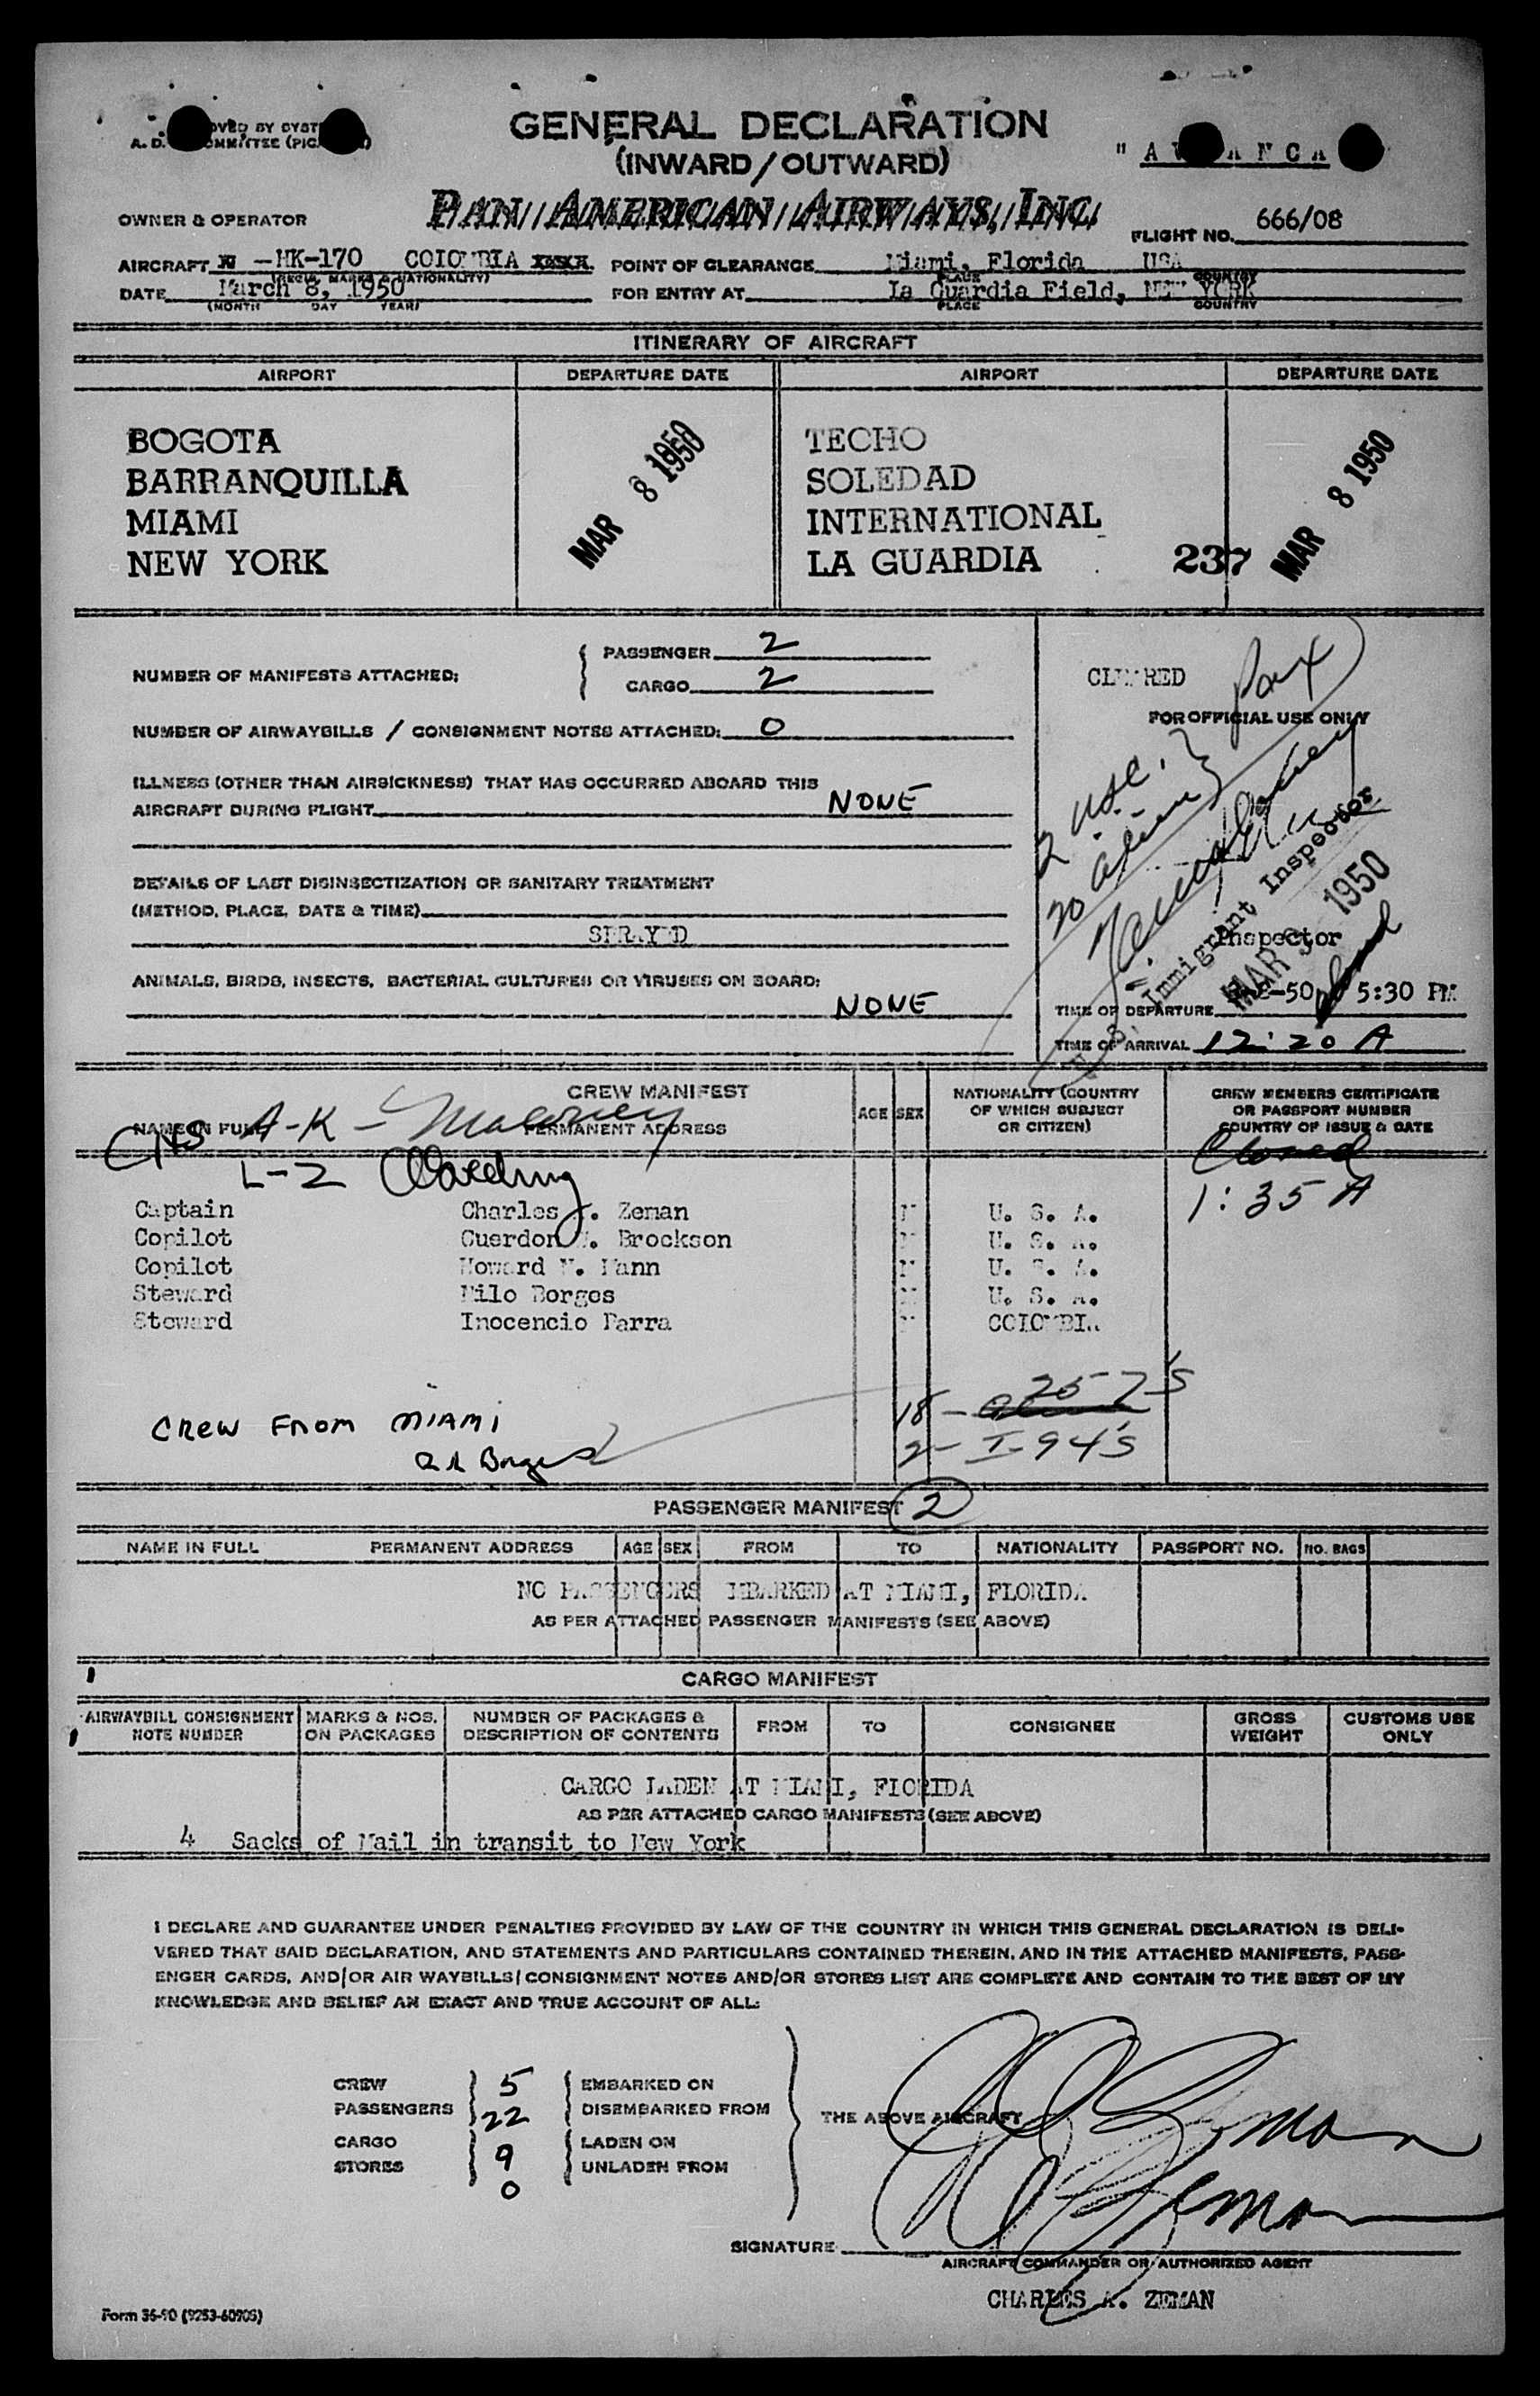 GENERAL DECLARATION
(INWARD/OUTWARD)
OWNER & OPERATOR
PAN AMERICAN AIRWAYS, INC.
FLIGHT NO. 666/08
AIRCRAFT -HK-170 COLOMBIA
POINT OF CLEARANCE Miami, Florida USA
(REGIS. MARKS & NATIONALITY) PLACE COUNTRY
DATE March 8, 1950
FOR ENTRY AT La Guardia Field, NEW YORK
(MONTH DAY YEAR) PLACE COUNTRY
ITINERARY OF AIRCRAFT
AIRPORT DEPARTURE DATE AIRPORT DEPARTURE DATE
BOGOTA TECHO
BARRANQUILLA SOLEDAD
MIAMI INTERNATIONAL
NEW YORK LA GUARDIA 237
MAR 8 1950 MAR 8 1950
NUMBER OF MANIFESTS ATTACHED:
PASSENGER 2
CARGO 2
NUMBER OF AIRWAYBILLS / CONSIGNMENT NOTES ATTACHED: 0
ILLNESS (OTHER THAN AIRSICKNESS) THAT HAS OCCURRED ABOARD THIS
AIRCRAFT DURING FLIGHT NONE
DETAILS OF LAST DISINSECTIZATION OR SANITARY TREATMENT
(METHOD, PLACE, DATE & TIME)
SPRAYED
ANIMALS, BIRDS, INSECTS, BACTERIAL CULTURES OR VIRUSES ON BOARD:
NONE
CLEARED
Pax
FOR OFFICIAL USE ONLY
2 USC.
20 aliens
Immigrant Inspector
MAR 9 1950
Inspector
TIME OF DEPARTURE 5:30 PM
TIME OF ARRIVAL 12:20 A
CREW MANIFEST
NAME IN FULL PERMANENT ADDRESS
AGE SEX
NATIONALITY (COUNTRY
OF WHICH SUBJECT
OR CITIZEN)
CREW MEMBERS CERTIFICATE
OR PASSPORT NUMBER
COUNTRY OF ISSUE & DATE
CNS A-K - Maloney
L-Z
Closed
1:35 A
Captain Charles A. Zeman M U. S. A.
Copilot Cuerdon Brockson M U. S. A.
Copilot Howard Mann M U. S. A.
Steward Milo Borges M U. S. A.
Steward Inocencio Parra M COLOMBIA
18 - 257's
2 - I-94's
CREW FROM MIAMI
PASSENGER MANIFEST 2
NAME IN FULL PERMANENT ADDRESS AGE SEX FROM TO NATIONALITY PASSPORT NO. NO. BAGS
NO PASSENGERS EMBARKED AT MIAMI, FLORIDA
AS PER ATTACHED PASSENGER MANIFESTS (SEE ABOVE)
CARGO MANIFEST
AIRWAYBILL CONSIGNMENT NOTE NUMBER
MARKS & NOS. ON PACKAGES
NUMBER OF PACKAGES & DESCRIPTION OF CONTENTS
FROM TO CONSIGNEE
GROSS WEIGHT
CUSTOMS USE ONLY
CARGO LADEN AT MIAMI, FLORIDA
AS PER ATTACHED CARGO MANIFESTS (SEE ABOVE)
4 Sacks of Mail in transit to New York
I DECLARE AND GUARANTEE UNDER PENALTIES PROVIDED BY LAW OF THE COUNTRY IN WHICH THIS GENERAL DECLARATION IS DELI-
VERED THAT SAID DECLARATION, AND STATEMENTS AND PARTICULARS CONTAINED THEREIN, AND IN THE ATTACHED MANIFESTS, PASS-
ENGER CARDS, AND/OR AIR WAYBILLS/CONSIGNMENT NOTES AND/OR STORES LIST ARE COMPLETE AND CONTAIN TO THE BEST OF MY
KNOWLEDGE AND BELIEF AN EXACT AND TRUE ACCOUNT OF ALL:
CREW 5 EMBARKED ON
PASSENGERS 22 DISEMBARKED FROM
THE ABOVE AIRCRAFT
CARGO 9 LADEN ON
STORES 0 UNLADEN FROM
SIGNATURE
AIRCRAFT COMMANDER OR AUTHORIZED AGENT
CHARLES A. ZEMAN
Form 36-90 (9253-60908)